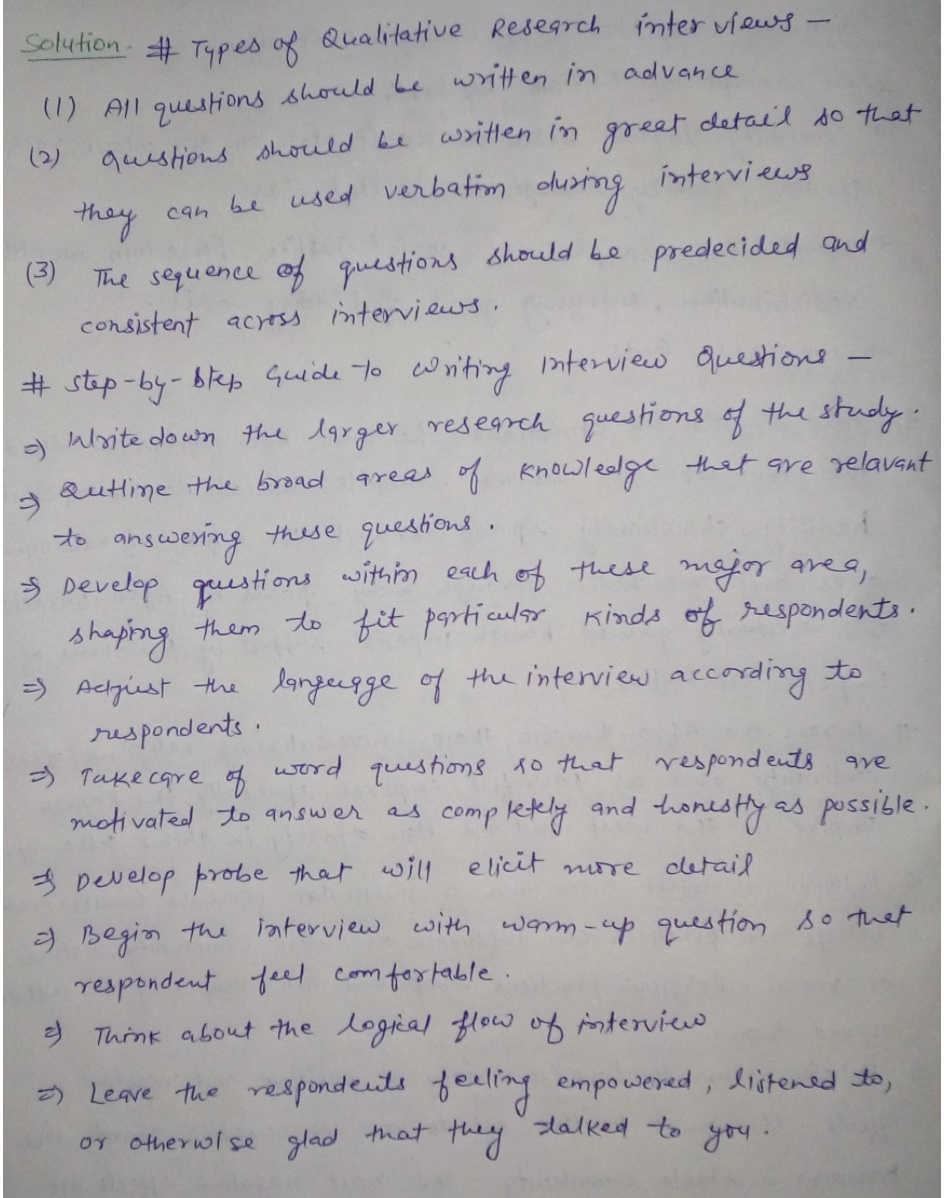 Solution. # Types of Qualitative Research interviews -
(1) All questions should be written in advance
(2) questions should be written in great detail so that
they can be used verbatim during interviews
(3) The sequence of questions should be predecided and
consistent across interviews.
# step-by-step Guide to writing Interview Questions -
⇒ Write down the larger research questions of the study.
⇒ Outline the broad areas of knowledge that are relavant
to answering these questions.
⇒ Develop questions within each of these major area,
shaping them to fit particular kinds of respondents.
⇒ Adjust the language of the interview according to
respondents.
⇒ Take care of word questions so that respondents are
motivated to answer as completely and honestly as possible.
⇒ Develop probe that will elicit more detail
⇒ Begin the interview with warm-up question so that
respondent feel comfortable.
⇒ Think about the logical flow of interview
⇒ Leave the respondents feeling empowered, listened to,
or otherwise glad that they talked to you.